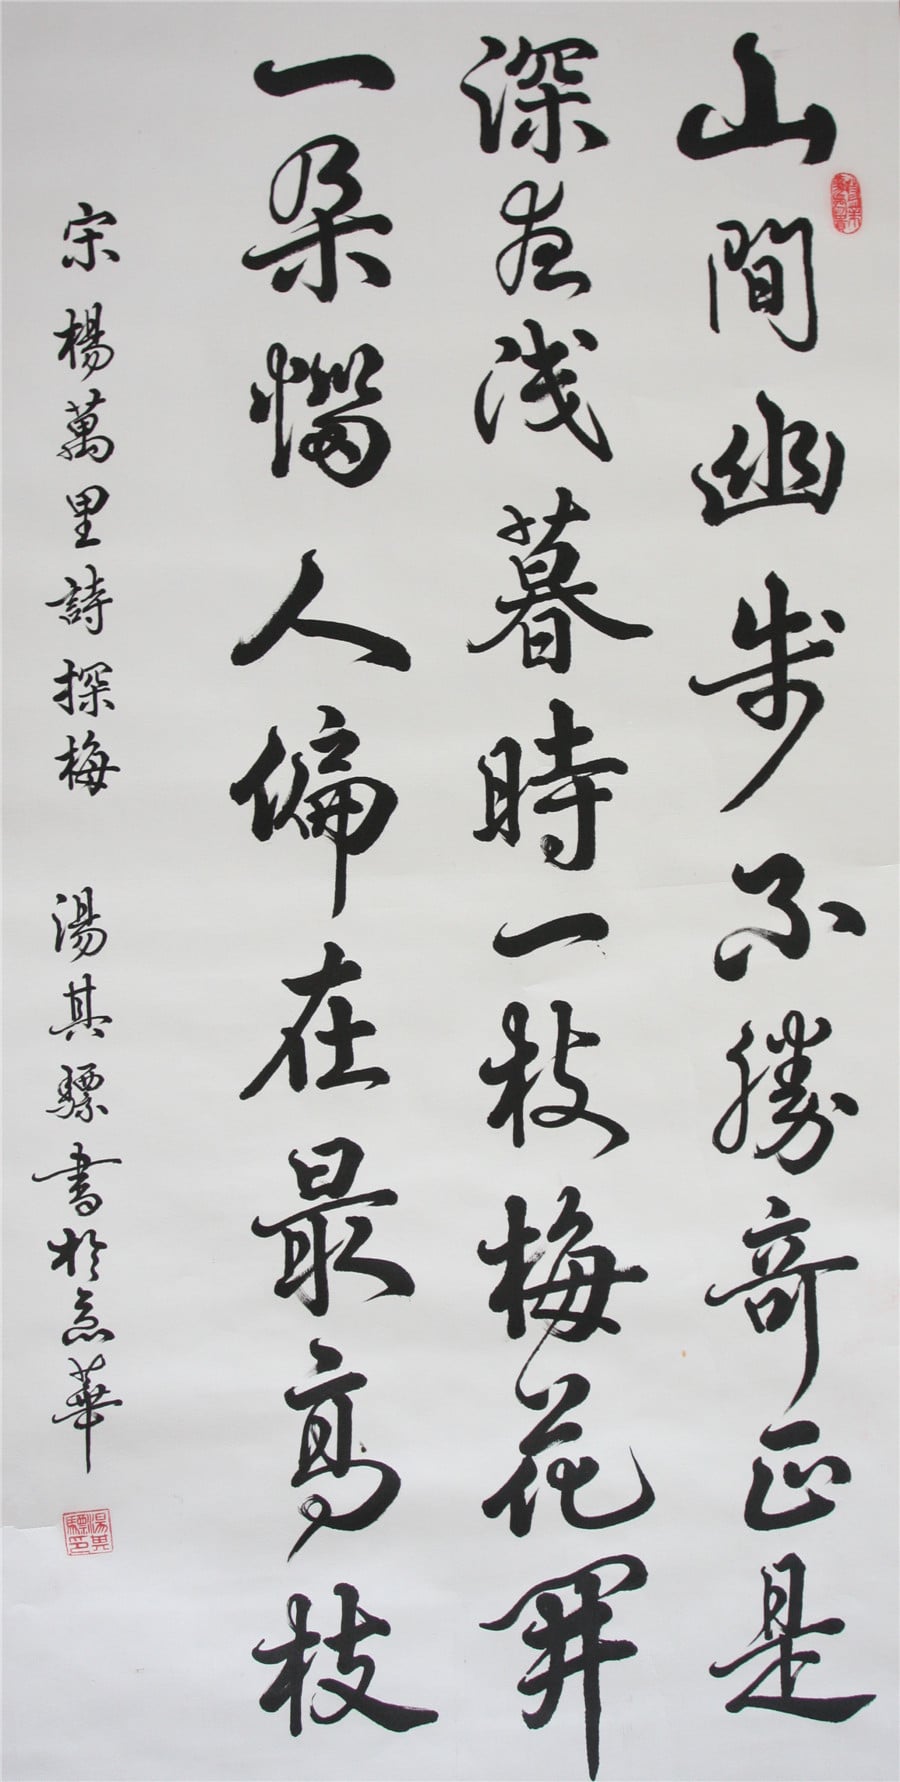 山間幽步不勝奇正是
深夜浅暮時一枝梅花開
一朵惱人偏在最高枝
宋楊萬里詩探梅 湯其驃書於京華
湯其驃印